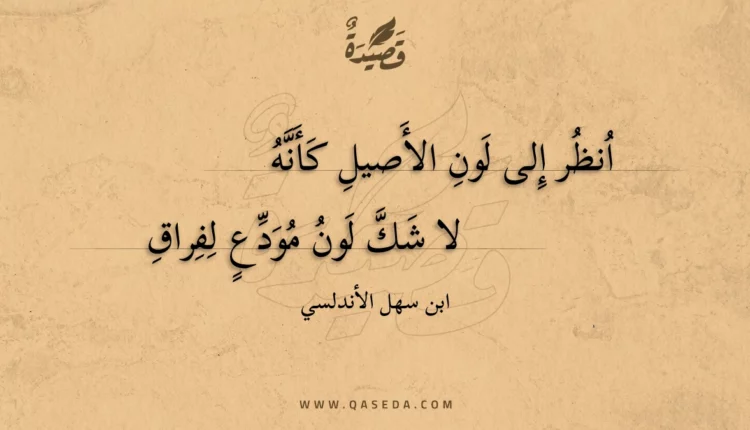 قَصِيدَةٌ
اُنظُر إِلى لَونِ الأَصيلِ كَأَنَّهُ
لا شَكَّ لَونُ مُوَدِّعٍ لِفِراقِ
ابن سهل الأندلسي
WWW.QASEDA.COM